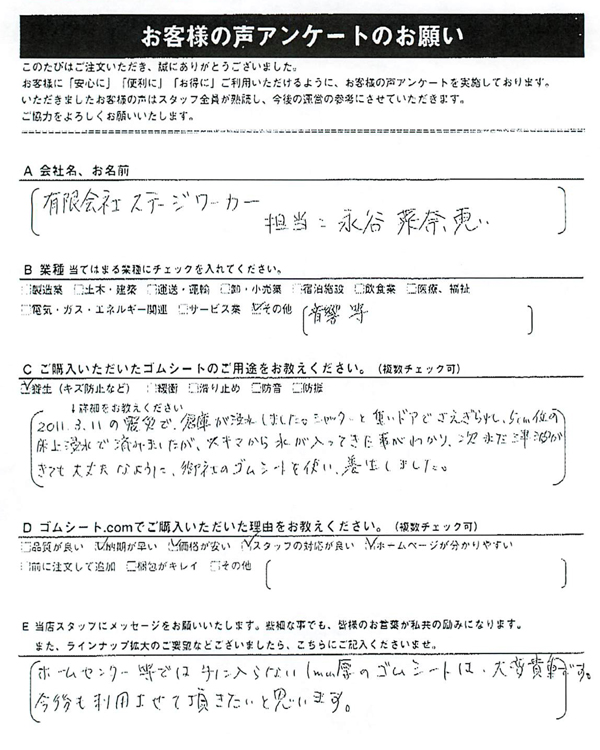 お客様の声アンケートのお願い
このたびはご注文いただき、誠にありがとうございました。
お客様に「安心に」「便利に」「お得に」ご利用いただけるように、お客様の声アンケートを実施しております。
いただきましたお客様の声はスタッフ全員が熟読し、今後の運営の参考にさせていただきます。
ご協力をよろしくお願いいたします。
A 会社名、お名前
有限会社 ステージワーカー
担当：永谷 菜奈恵
B 業種 当てはまる業種にチェックを入れてください。
□製造業 □土木・建築 □運送・運輸 □卸・小売業 □宿泊施設 □飲食業 □医療、福祉
□電気・ガス・エネルギー関連 □サービス業 ☑その他 (音響 等)
C ご購入いただいたゴムシートのご用途をお教えください。(複数チェック可)
☑養生(キズ防止など) □緩衝 □滑り止め □防音 □防振
↓詳細をお教えください
2011.3.11の震災で、倉庫が浸水しました。シャッターと重いドアでさえぎられ、5cm位の
床上浸水で済みましたが、スキマから水が入ってきた事がわかり、次また津波が
きても大丈夫なように、御社のゴムシートを使い、養生しました。
D ゴムシート.comでご購入いただいた理由をお教えください。(複数チェック可)
□品質が良い ☑納期が早い ☑価格が安い ☑スタッフの対応が良い ☑ホームページが分かりやすい
□前に注文して追加 □梱包がキレイ □その他
E 当店スタッフにメッセージをお願いいたします。些細な事でも、皆様のお言葉が私共の励みになります。
また、ラインナップ拡大のご要望などございましたら、こちらにご記入くださいませ。
ホームセンター等では手に入らない1mm厚のゴムシートは、大変貴重です。
今後も利用させて頂きたいと思います。